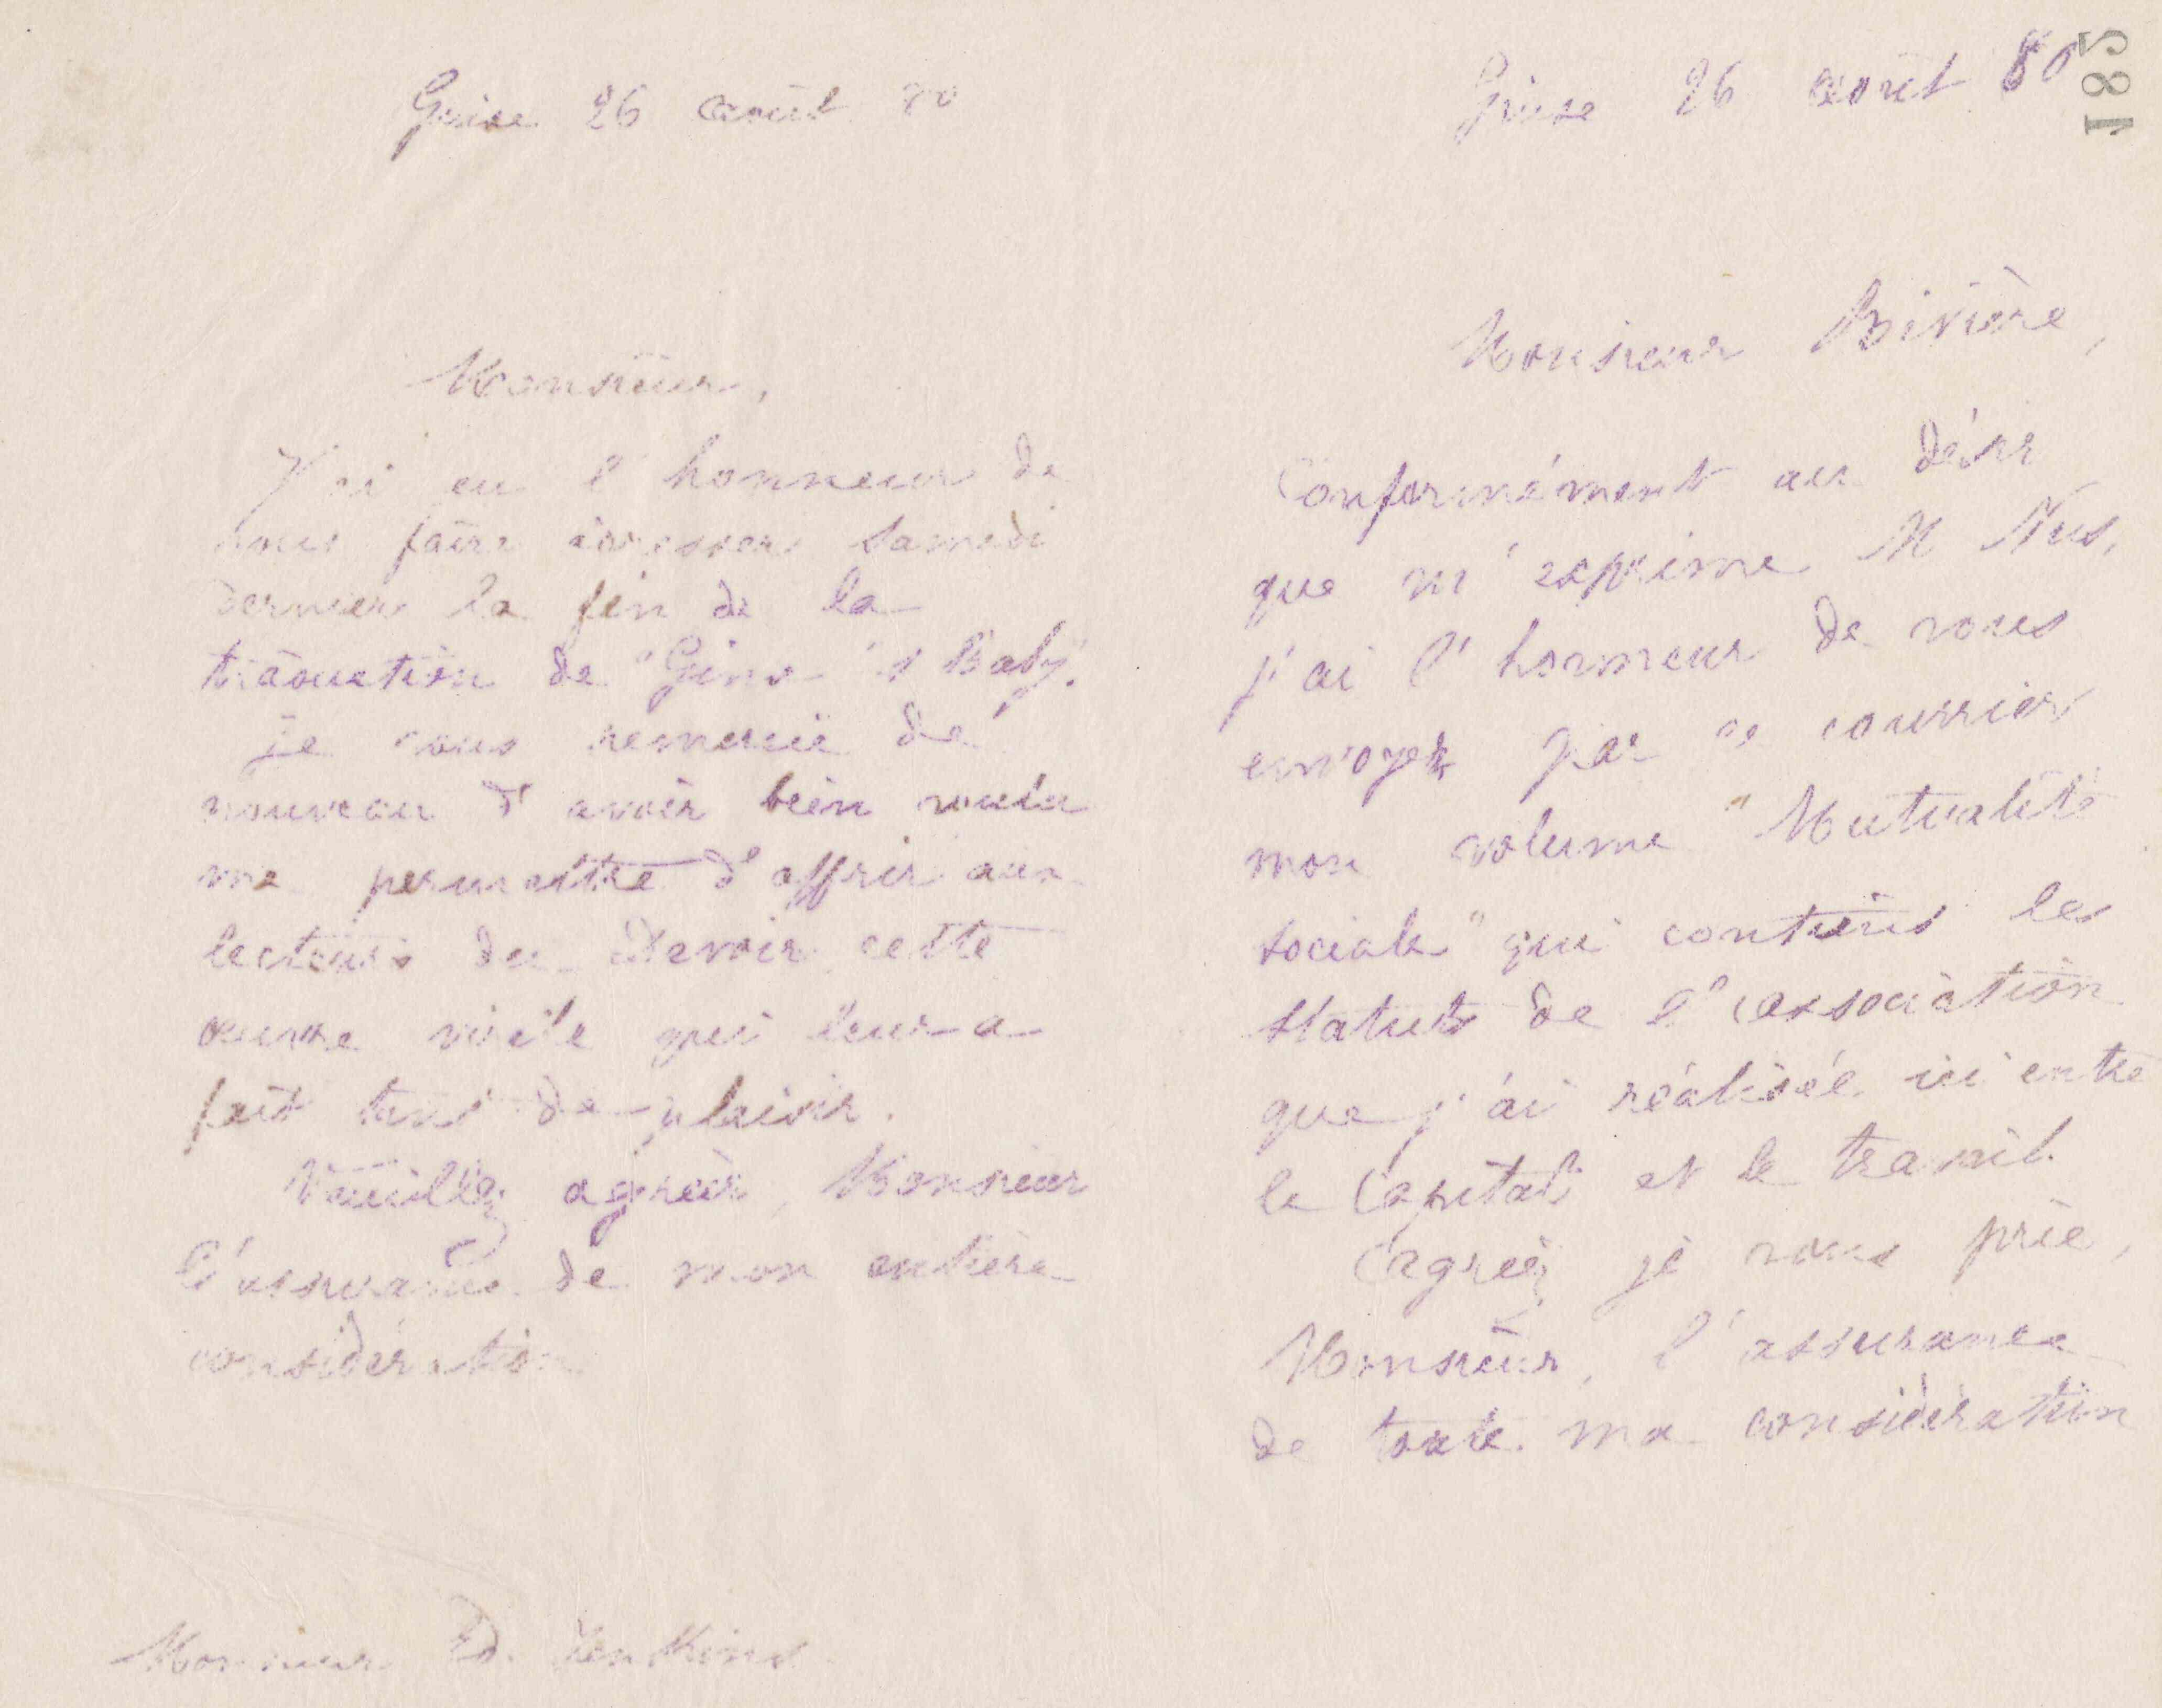 Guise 26 août 80
Monsieur,
J'ai eu l'honneur de
vous faire adresser samedi
dernier la fin de la
traduction de "Ginx's Baby".
Je vous remercie de
nouveau d'avoir bien voulu
me permettre d'offrir aux
lecteurs du Devoir cette
œuvre virile qui leur a
fait tant de plaisir.
Veuillez agréer, Monsieur
l'assurance de mon entière
considération
Monsieur Ed. Jenkins
185
Guise 26 août 80
Monsieur Birière,
Conformément au désir
que m'exprime M Nus,
j'ai l'honneur de vous
envoyer par ce courrier
mon volume "Mutualité
sociale" qui contient les
statuts de l'association
que j'ai réalisée ici entre
le Capital et le travail.
Agréez je vous prie,
Monsieur, l'assurance
de toute ma considération